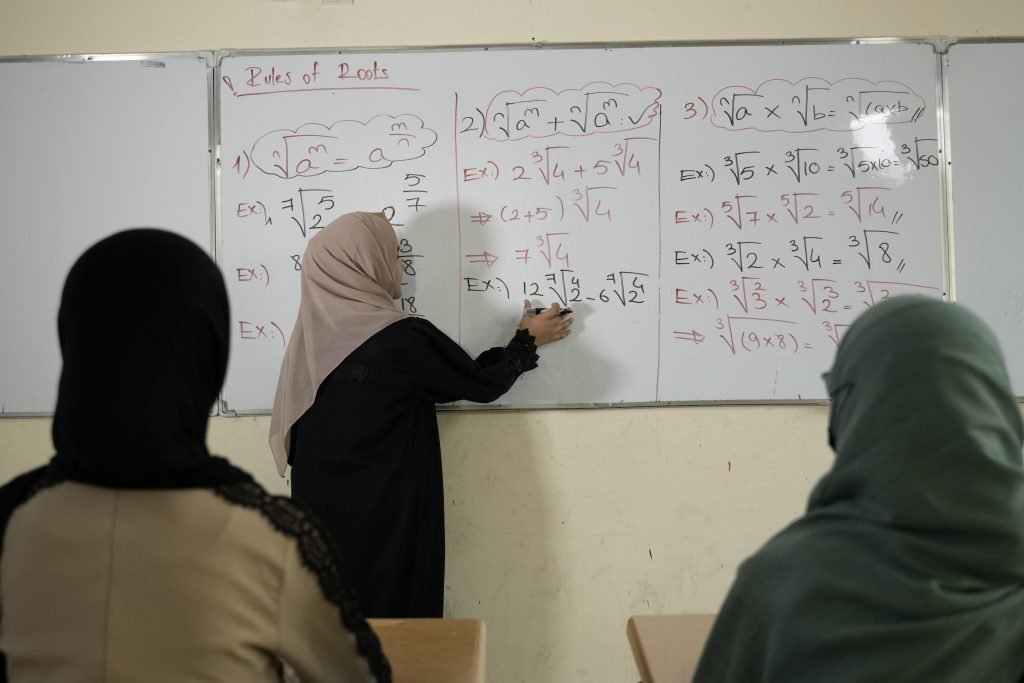 Rules of Roots
1) ⁿ√(a^m) = a^(m/n)
Ex:) ⁷√(2^5) 2^(5/7)
Ex:) 8 3/8
Ex:) 18
2) ⁿ√(a^m) + ⁿ√(a^m) :
Ex:) 2 ³√4 + 5 ³√4
⇒ (2+5) ³√4
⇒ 7 ³√4
Ex:) 12 ⁷√(2^4) - 6 ⁷√(2^4)
3) ⁿ√a × ⁿ√b = ⁿ√(a×b //
Ex:) ³√5 × ³√10 = ³√5×10 = ³√50
Ex:) ⁵√7 × ⁵√2 = ⁵√14 //
Ex:) ³√2 × ³√4 = ³√8 //
Ex:) ³√(3^2) × ³√(2^3) = ³√
⇒ ³√(9×8) = ³√